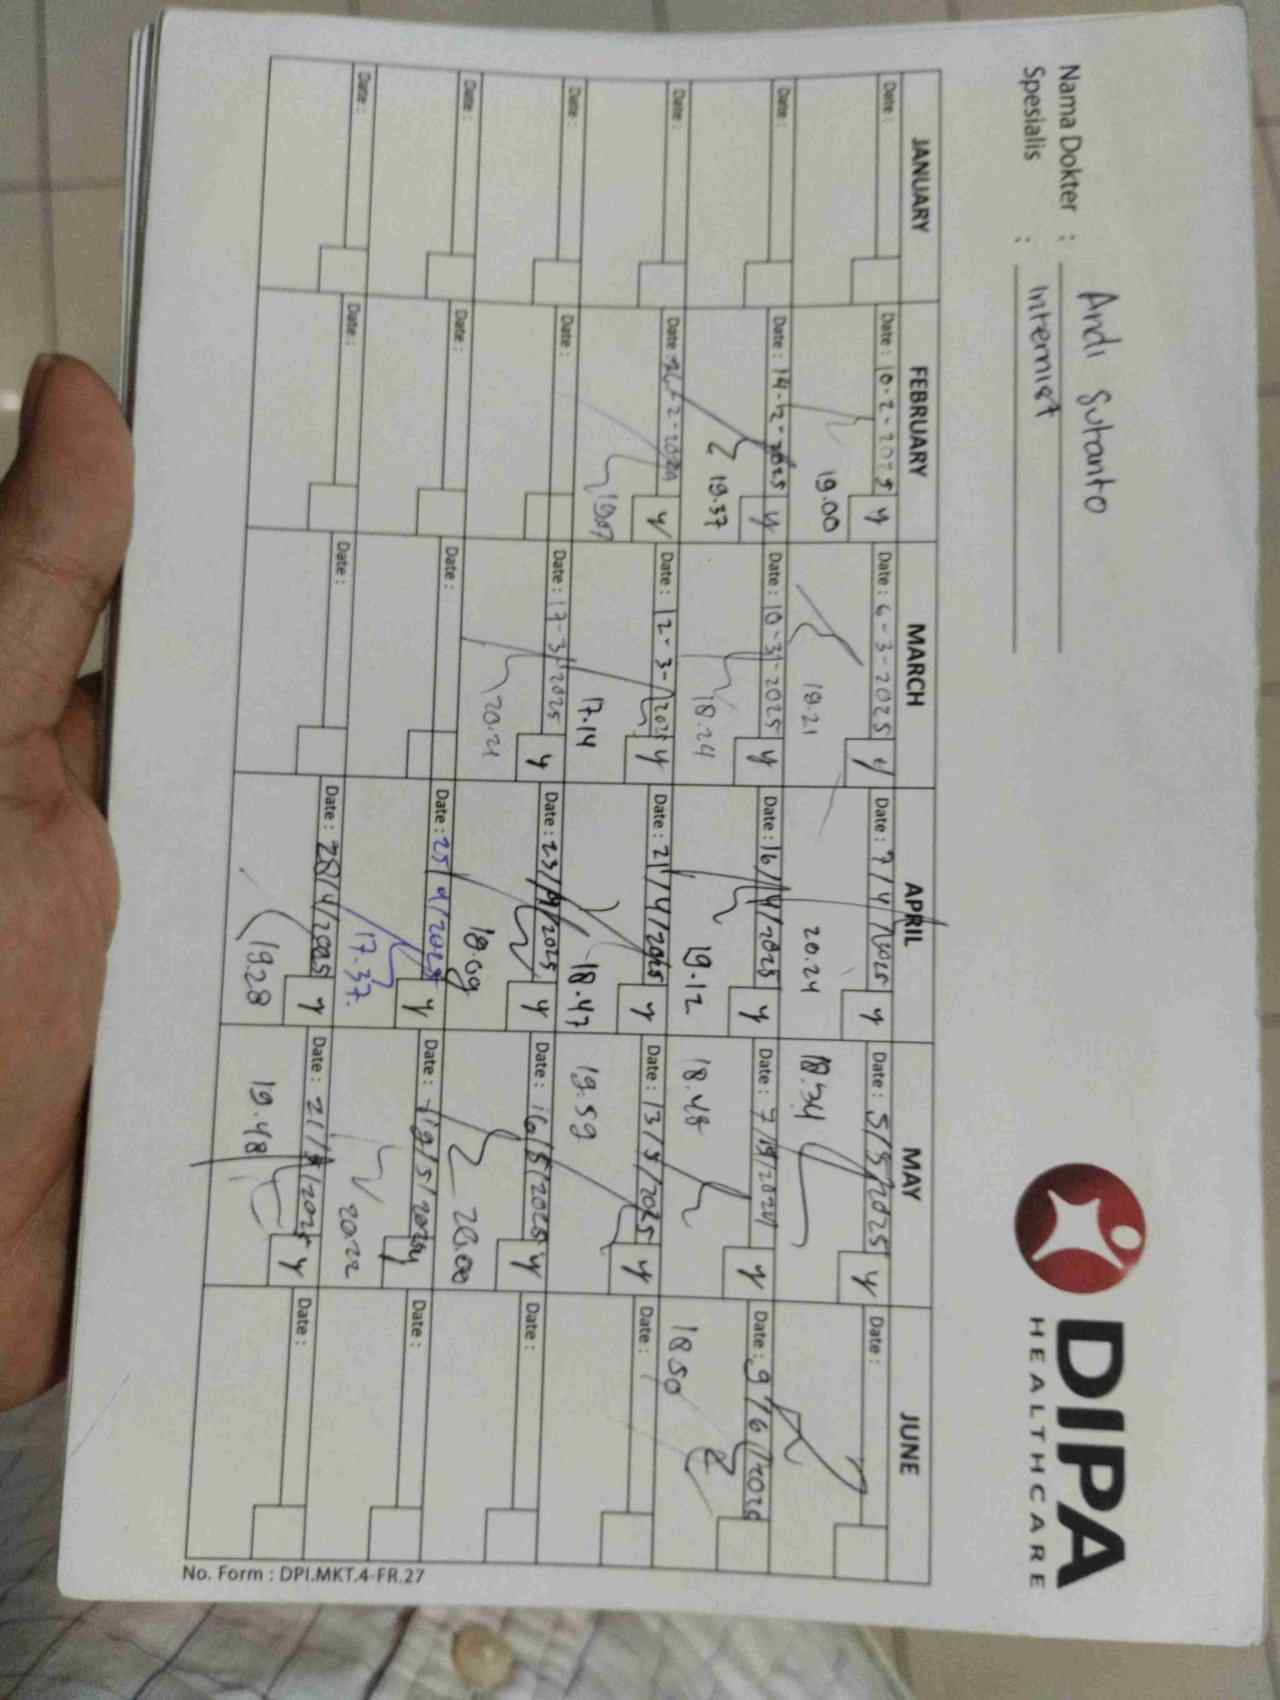 Nama Dokter : Andi Sutanto
Spesialis : Internist
DIPA
HEALTHCARE
JANUARY FEBRUARY MARCH APRIL MAY JUNE
Date : Date : 10-2-2025 y Date : 6-3-2025 y Date : 7/4/2025 y Date : 5/5/2025 y Date :
19.00 18.21 20.24 18.34
Date : Date : 14-2-2025 y Date : 10-3-2025 y Date : 16/4/2025 y Date : 7/5/2021 y Date : 9/6/2025
19.37 18.24 19.12 18.48 18 50
Date : Date : 26-2-2021 y Date : 12-3-2025 y Date : 21/4/2025 y Date : 13/5/2025 y Date :
19.07 17.14 18.47 19.59
Date : Date : Date : 17-3-2025 y Date : 23/4/2025 y Date : 16/5/2025 y Date :
20.21 18.09 20.00
Date : Date : Date : Date : 25/4/2025 y Date : 19/5/2025 y Date :
17.37. 20.22
Date : Date : Date : Date : 28/4/2025 y Date : 21/5/2025 y Date :
19.28 19.48
No. Form : DPI.MKT.4-FR.27